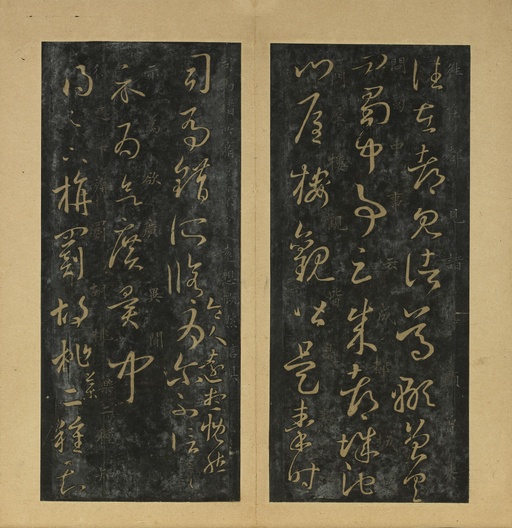 往在都見諸葛顒曾具
問蜀中事云成都城池
門屋樓觀皆是秦時
司馬錯所脩令人遠想慨然為爾不信
示為欲廣異聞
得足下旃罽胡桃藥二種知